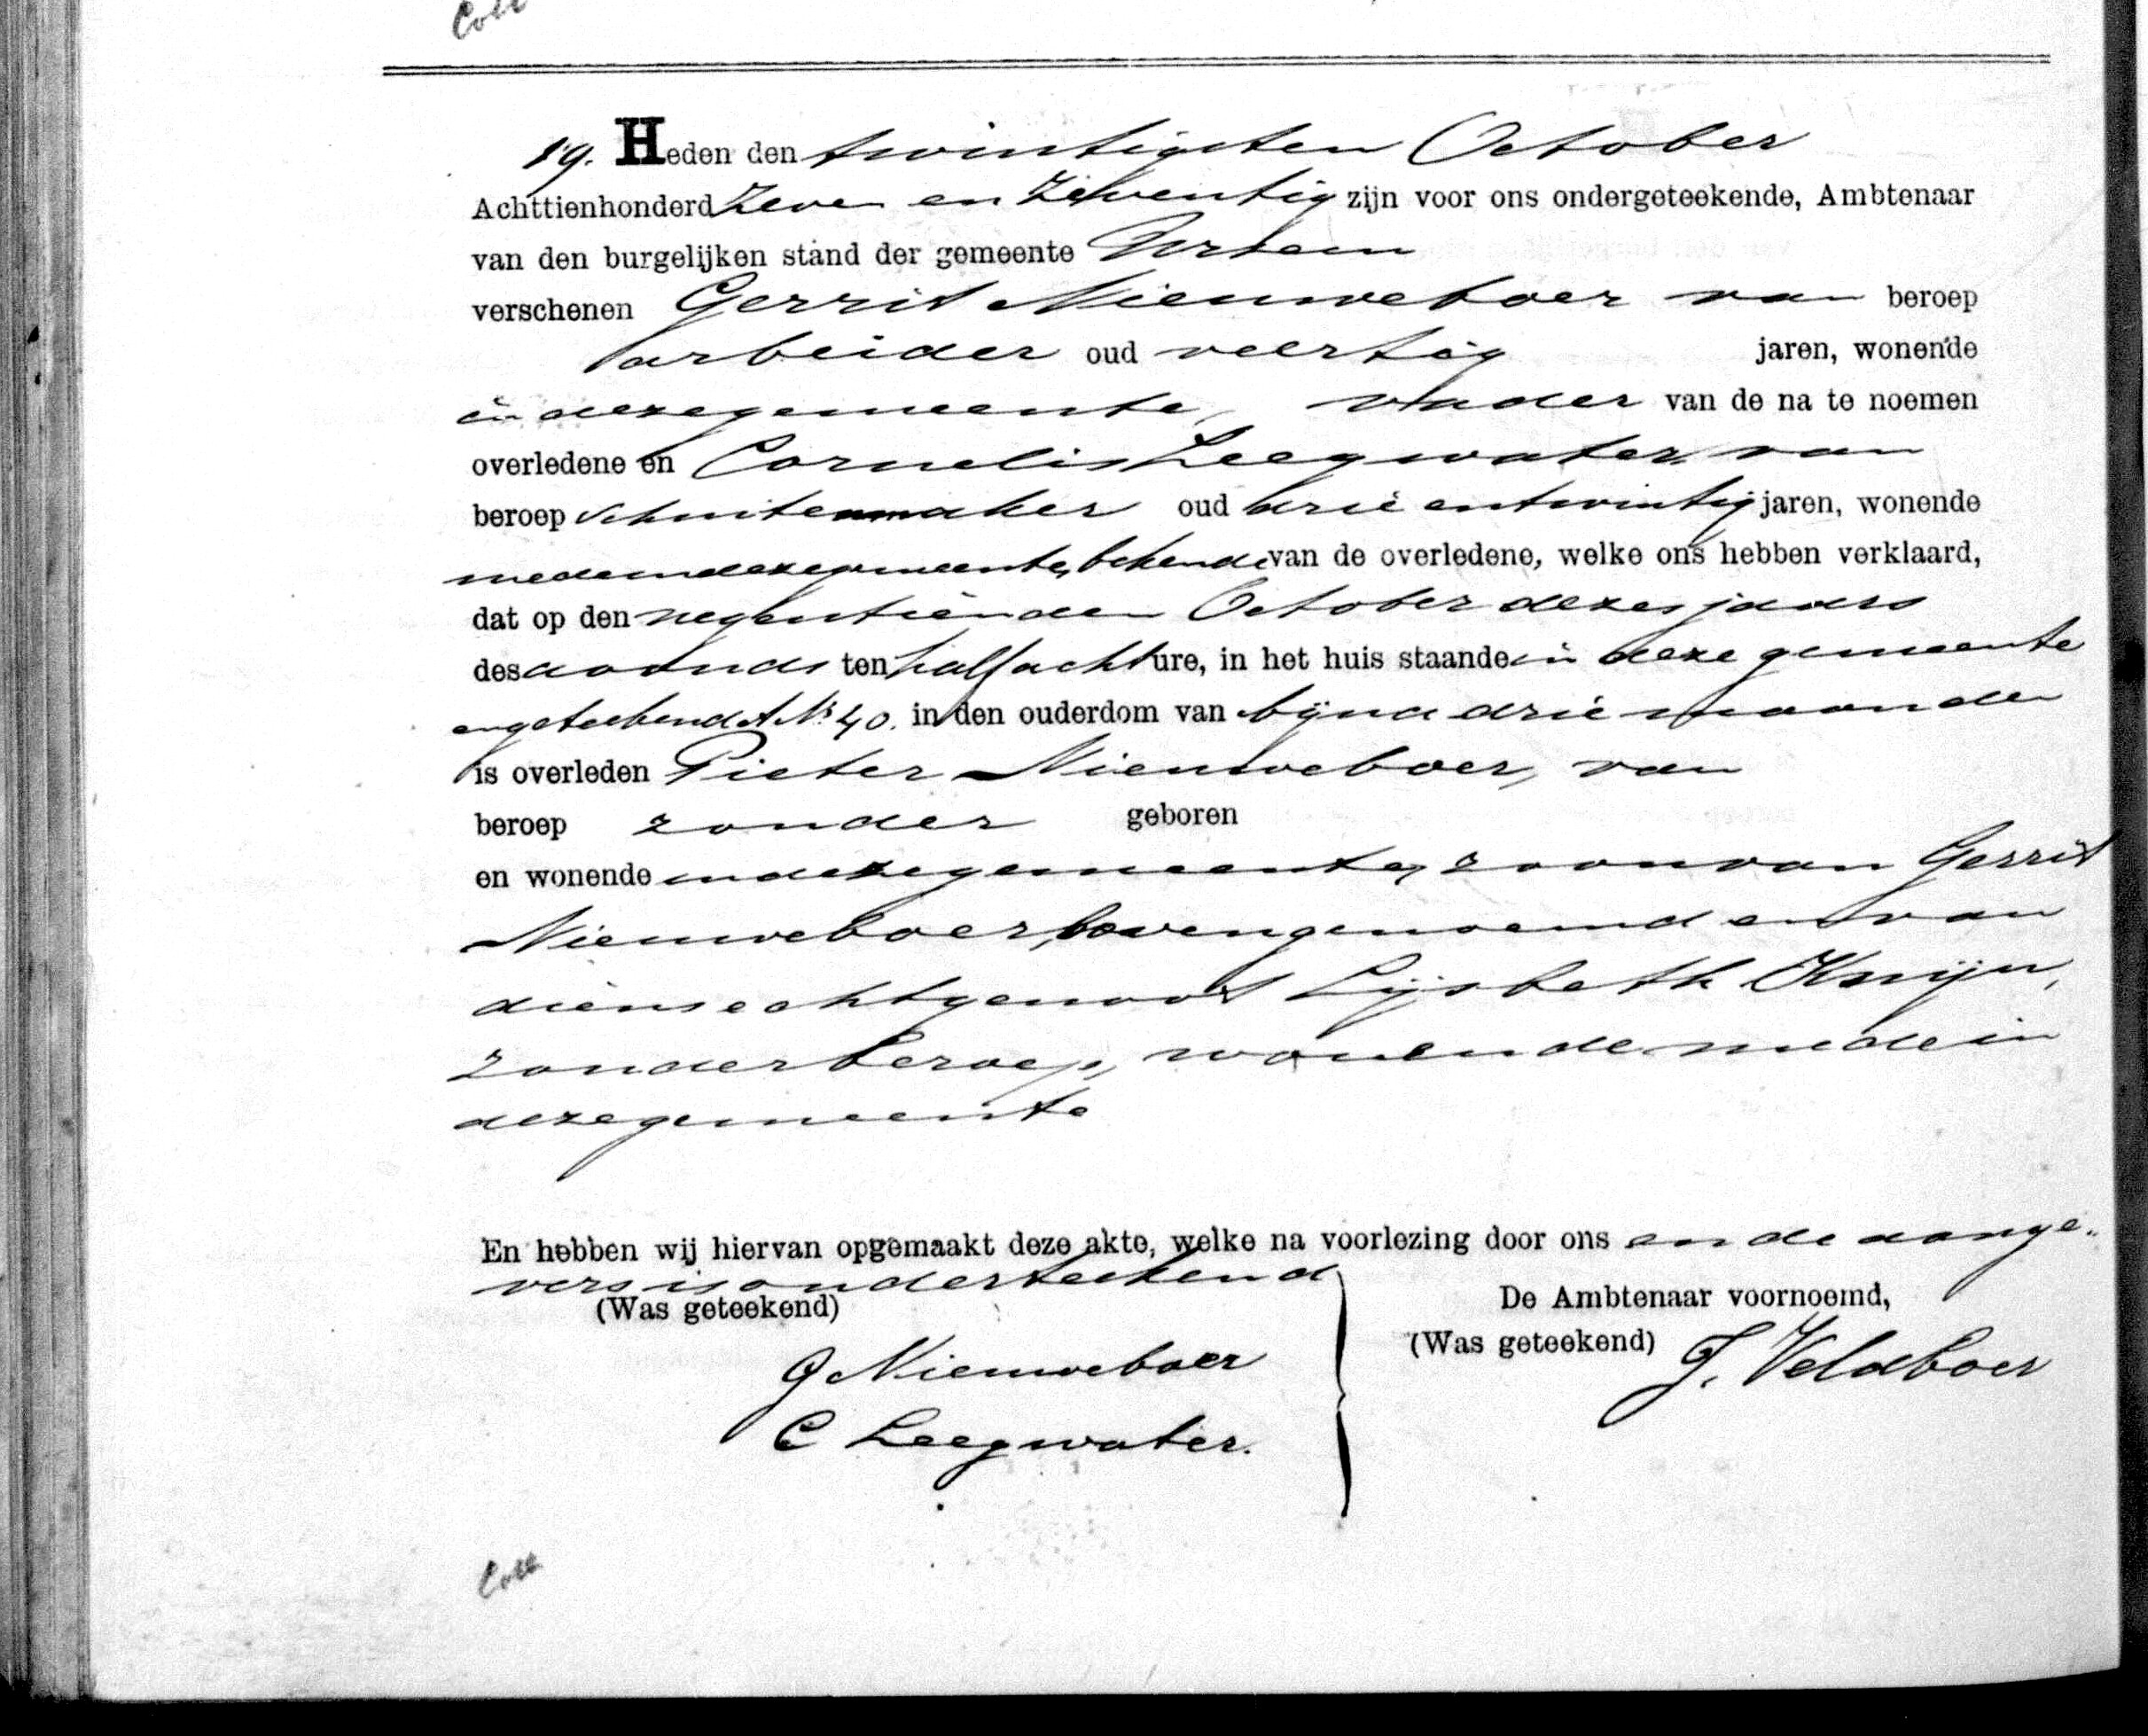 Coll
19. Heden den twintigsten October
Achttienhonderd zeven en zeventig zijn voor ons ondergeteekende, Ambtenaar
van den burgelijken stand der gemeente Ursem
verschenen Gerrit Nieuweboer van beroep
arbeider oud veertig jaren, wonende
in deze gemeente, vader van de na te noemen
overledene en Cornelis Leegwater, van
beroep schuitenmaker oud drie en twintig jaren, wonende
mede in deze gemeente, bekende van de overledene, welke ons hebben verklaard,
dat op den negentienden October dezes jaars
des avonds ten half acht ure, in het huis staande in deze gemeente
en geteekend A No 40. in den ouderdom van bijna drie maanden
is overleden Pieter Nieuweboer, van
beroep zonder geboren
en wonende in deze gemeente, zoon van Gerrit
Nieuweboer, bovengenoemd en van
diens echtgenoot Lijsbeth Knijn,
zonder beroep, wonende mede in
deze gemeente
En hebben wij hiervan opgemaakt deze akte, welke na voorlezing door ons en de aange-
vers is onderteekend
(Was geteekend)
G Nieuweboer
C Leegwater.
De Ambtenaar voornoemd,
(Was geteekend) J. Veldboer
Coll